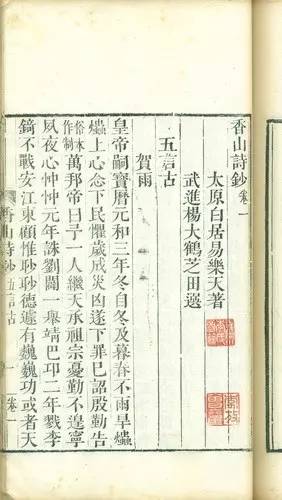 香山詩鈔卷一
太原白居易樂天著
武進楊大鶴芝田選
五言古
賀雨
皇帝嗣寶曆元和三年冬自冬及暮春不雨旱爞
爞上心念下民懼歲成災凶遂下罪已詔殷勤告
俗本作制萬邦帝曰予一人繼天承祖宗憂勤不遑寧
夙夜心忡忡元年誅劉闢一舉靖巴邛二年戮李
錡不戰安江東顧惟眇眇德遽有巍巍功或者天
香山詩鈔 五言古 一 卷一